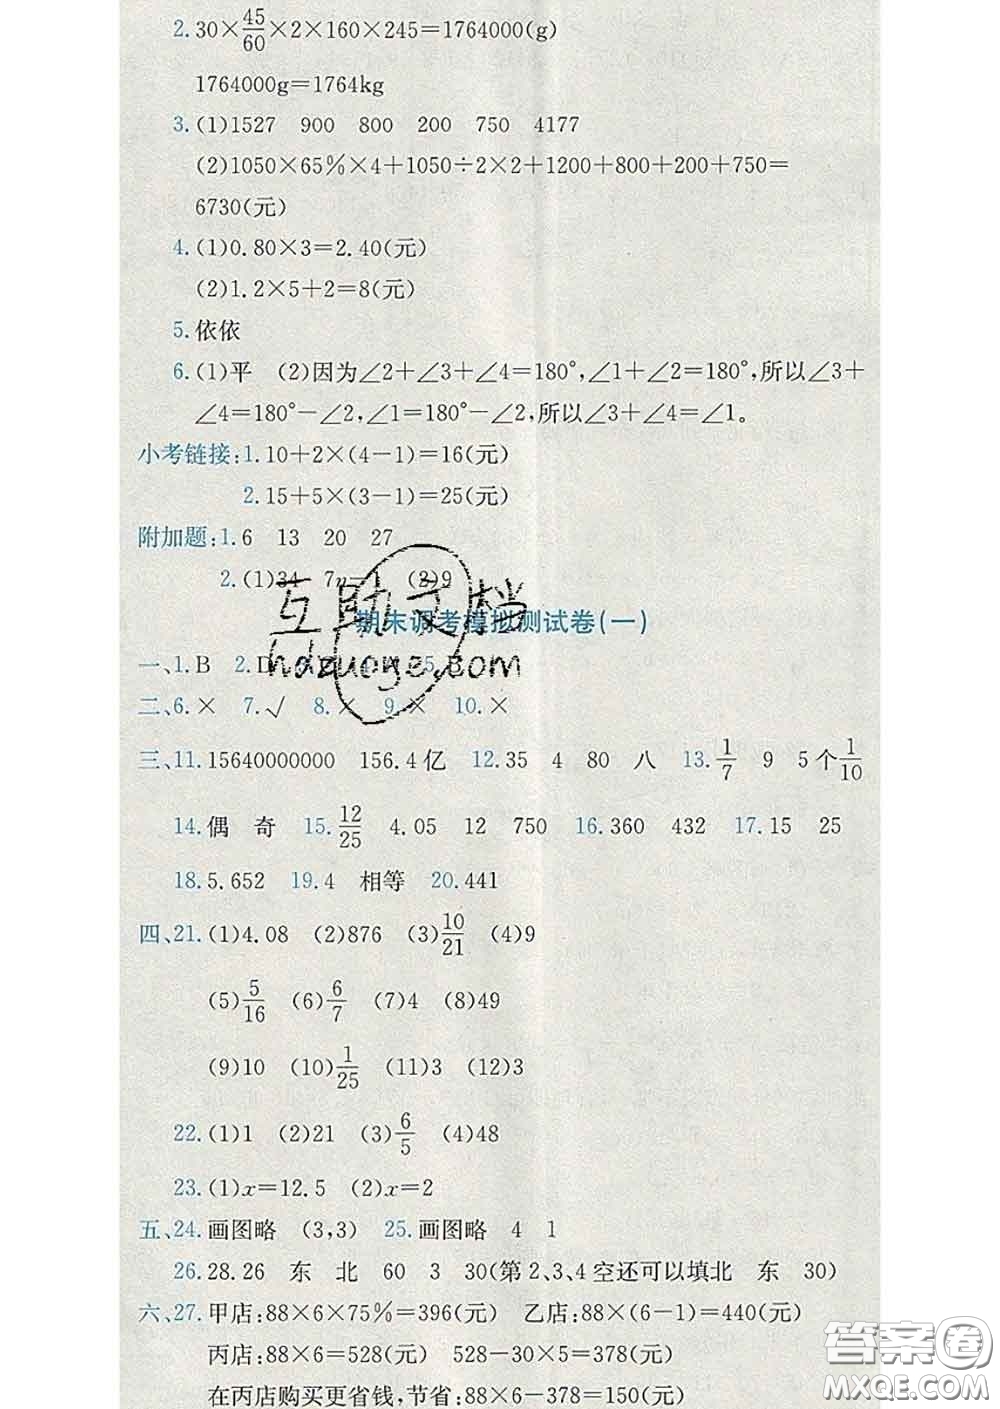 2.30×45/60×2×160×245=1764000(g)
1764000g=1764kg
3.(1)1527 900 800 200 750 4177
(2)1050×65%×4+1050÷2×2+1200+800+200+750=
6730(元)
4.(1)0.80×3=2.40(元)
(2)1.2×5+2=8(元)
5.依依
6.(1)平 (2)因为∠2+∠3+∠4=180°,∠1+∠2=180°,所以∠3+
∠4=180°-∠2,∠1=180°-∠2,所以∠3+∠4=∠1。
小考链接:1.10+2×(4-1)=16(元)
2.15+5×(3-1)=25(元)
附加题:1.6 13 20 27
2.(1)34 7n-1 (2)9
互助文档
hdzuoye.com
期末调考模拟测试卷(一)
一、1.B 2.D 5.B
二、6.× 7.√ 8.× 9.× 10.×
三、11.15640000000 156.4亿 12.35 4 80 八 13.1/7 9 5个1/10
14.偶 奇 15.12/25 4.05 12 750 16.360 432 17.15 25
18.5.652 19.4 相等 20.441
四、21.(1)4.08 (2)876 (3)10/21 (4)9
(5)5/16 (6)6/7 (7)4 (8)49
(9)10 (10)1/25 (11)3 (12)3
22.(1)1 (2)21 (3)6/5 (4)48
23.(1)x=12.5 (2)x=2
五、24.画图略 (3,3) 25.画图略 4 1
26.28.26 东 北 60 3 30(第2、3、4空还可以填北 东 30)
六、27.甲店:88×6×75%=396(元) 乙店:88×(6-1)=440(元)
丙店:88×6=528(元) 528-30×5=378(元)
在丙店购买更省钱,节省:88×6-378=150(元)
答案圈
MXQE.COM